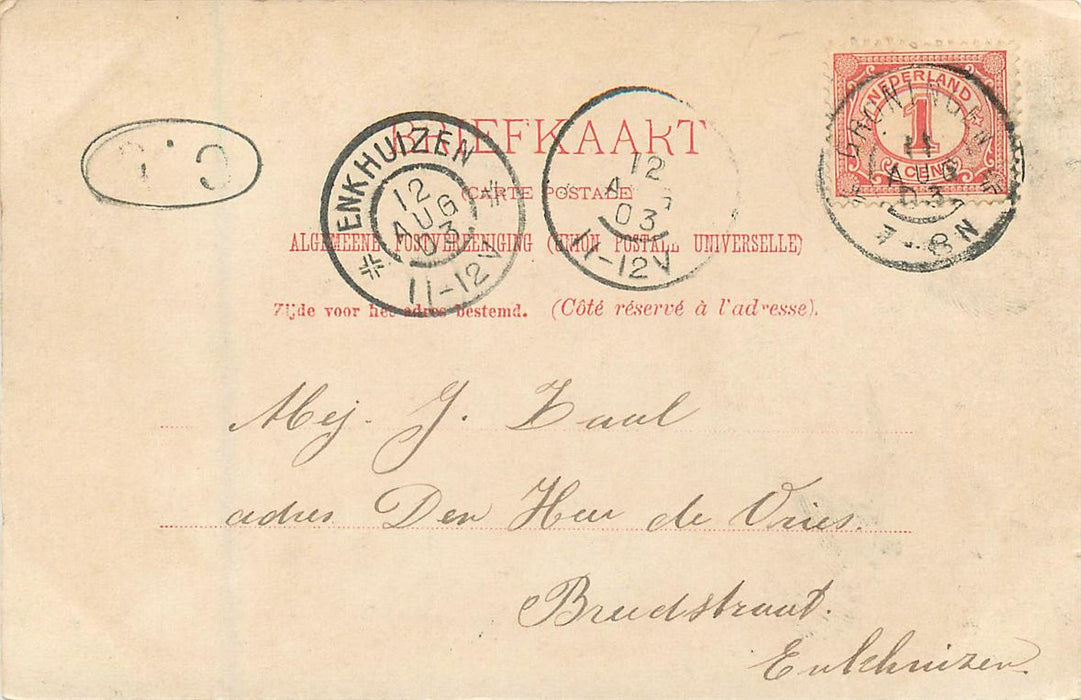 BRIEFKAART
(CARTE POSTALE)
ALGEMEENE POSTVEREENIGING (UNION POSTALE UNIVERSELLE)
Zijde voor het adres bestemd. (Côté réservé à l'adresse).
NEDERLAND
1
CENT
GRONINGEN
11
AUG
03
7-8N
ENKHUIZEN
12
AUG
03
11-12V
12
A G
03
11-12V
Mej. J. Zaal
adres Den Heer de Vries.
Breedstraat.
Enkhuizen